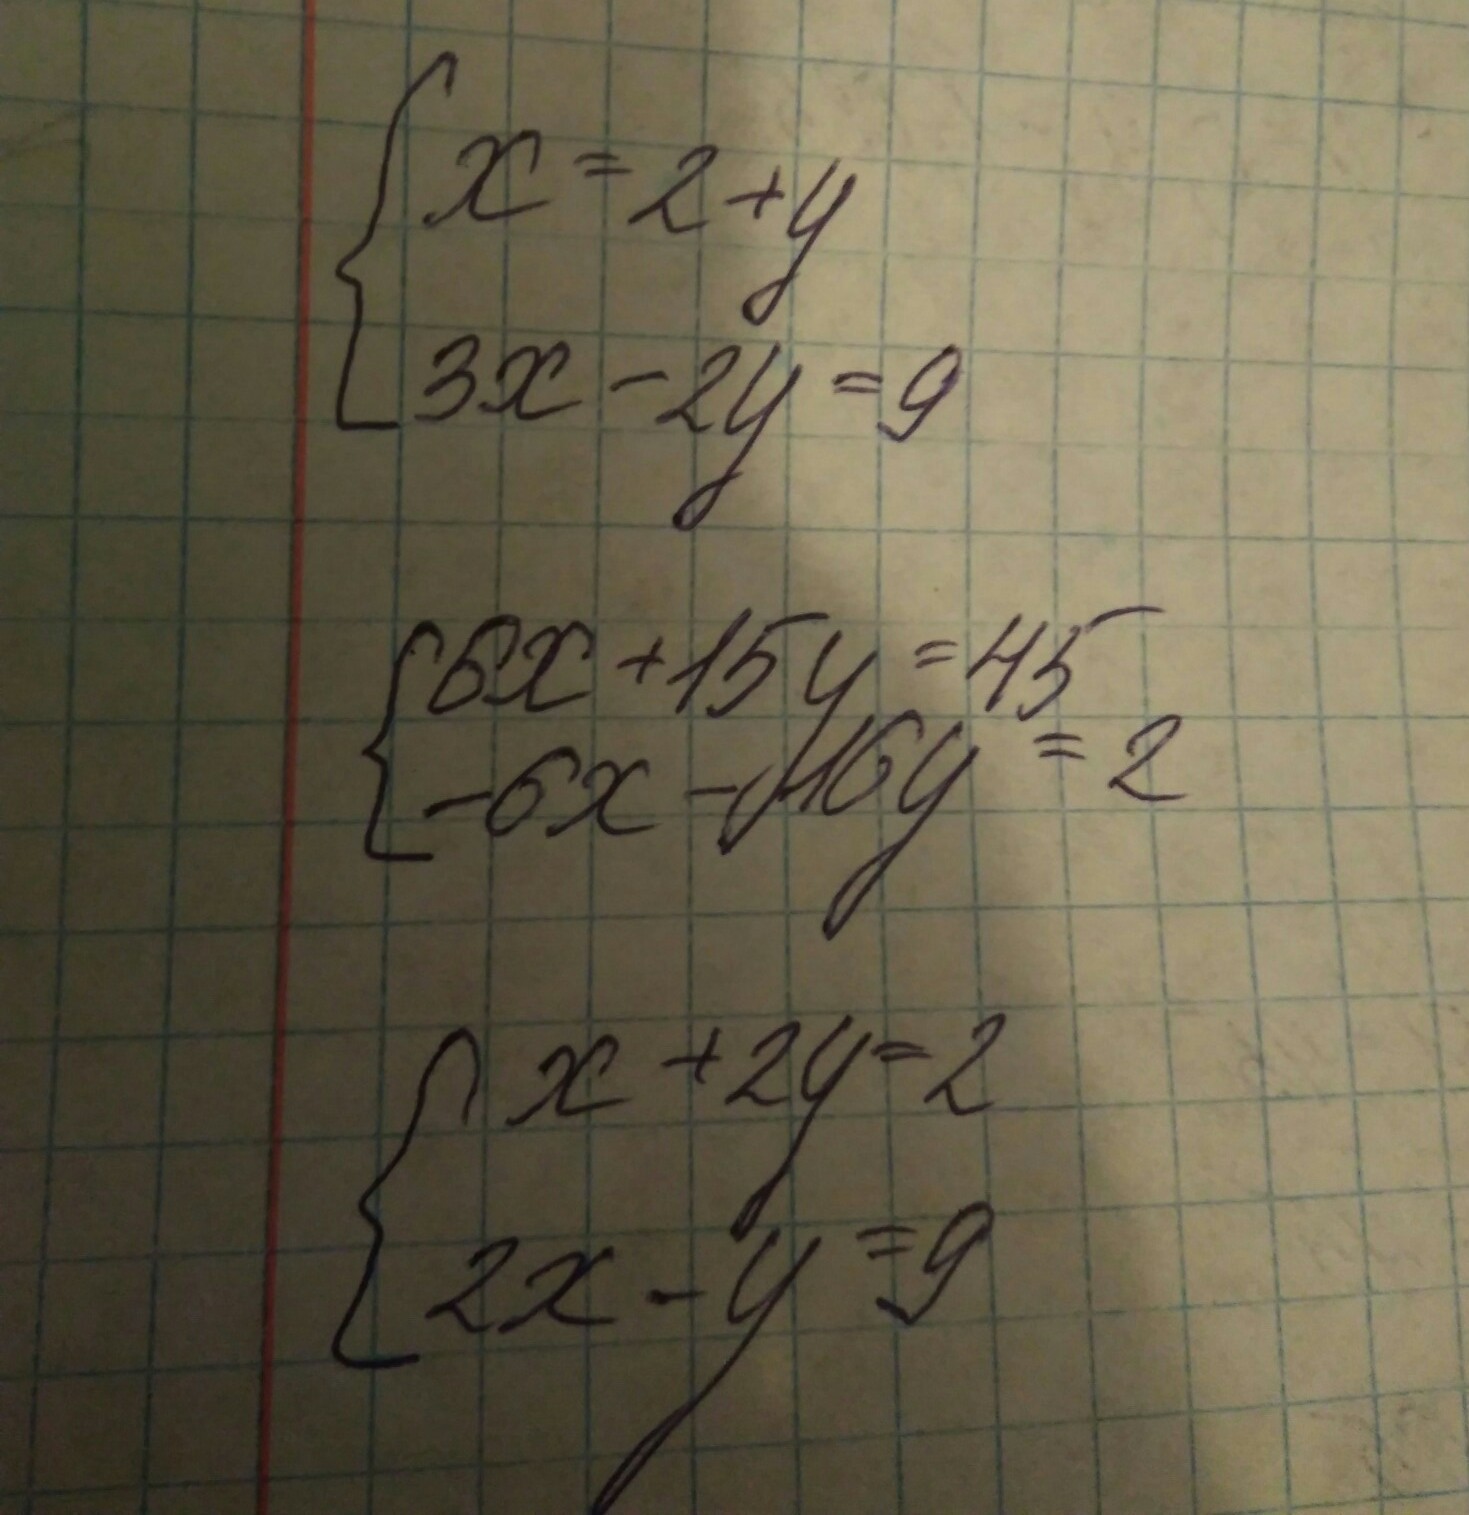 x = 2 + y
3x - 2y = 9
6x + 15y = 45
-6x - 16y = 2
x + 2y = 2
2x - y = 9